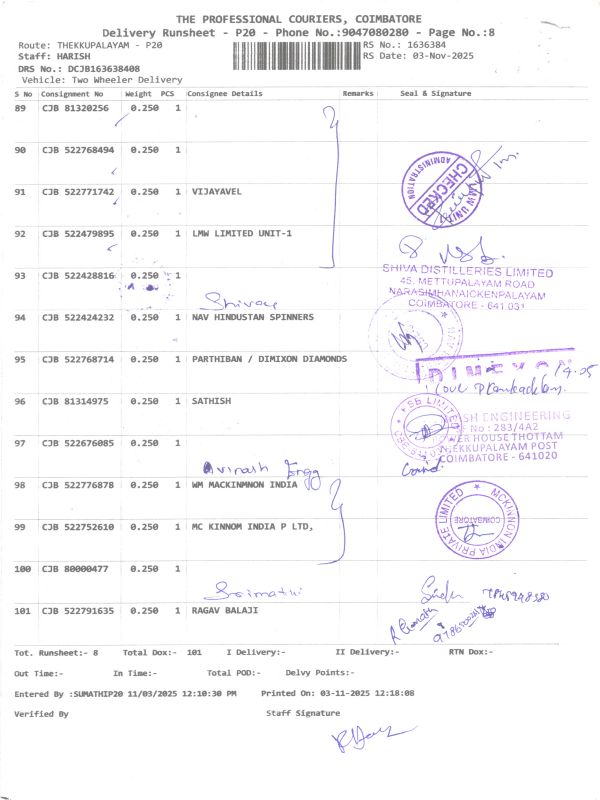 THE PROFESSIONAL COURIERS, COIMBATORE
Delivery Runsheet - P20 - Phone No.:9047080280 - Page No.:8
Route: THEKKUPALAYAM - P20 RS No.: 1636384
Staff: HARISH RS Date: 03-Nov-2025
DRS No.: DCJB163638408
Vehicle: Two Wheeler Delivery
S No Consignment No Weight PCS Consignee Details Remarks Seal & Signature
89 CJB 81320256 0.250 1
90 CJB 522768494 0.250 1
ADMINISTRATION CHECKED
91 CJB 522771742 0.250 1 VIJAYAVEL
92 CJB 522479895 0.250 1 LMW LIMITED UNIT-1
SHIVA DISTILLERIES LIMITED
93 CJB 522428816 0.250 1
45, METTUPALAYAM ROAD
NARASIMHANAICKENPALAYAM
COIMBATORE - 641 031
94 CJB 522424232 0.250 1 NAV HINDUSTAN SPINNERS
95 CJB 522768714 0.250 1 PARTHIBAN / DIMIXON DIAMONDS
96 CJB 81314975 0.250 1 SATHISH
SH ENGINEERING
F No : 283/4A2
97 CJB 522676085 0.250 1
ER HOUSE THOTTAM
EKKUPALAYAM POST
COIMBATORE - 641020
Avinash Engg
98 CJB 522776878 0.250 1 WM MACKINMNON INDIA
MCKINNON INDIA PRIVATE LIMITED
COIMBATORE
99 CJB 522752610 0.250 1 MC KINNOM INDIA P LTD,
100 CJB 80000477 0.250 1
Srimathi
101 CJB 522791635 0.250 1 RAGAV BALAJI
Tot. Runsheet:- 8 Total Dox:- 101 I Delivery:- II Delivery:- RTN Dox:-
Out Time:- In Time:- Total POD:- Delvy Points:-
Entered By :SUMATHIP20 11/03/2025 12:10:30 PM Printed On: 03-11-2025 12:18:08
Verified By Staff Signature